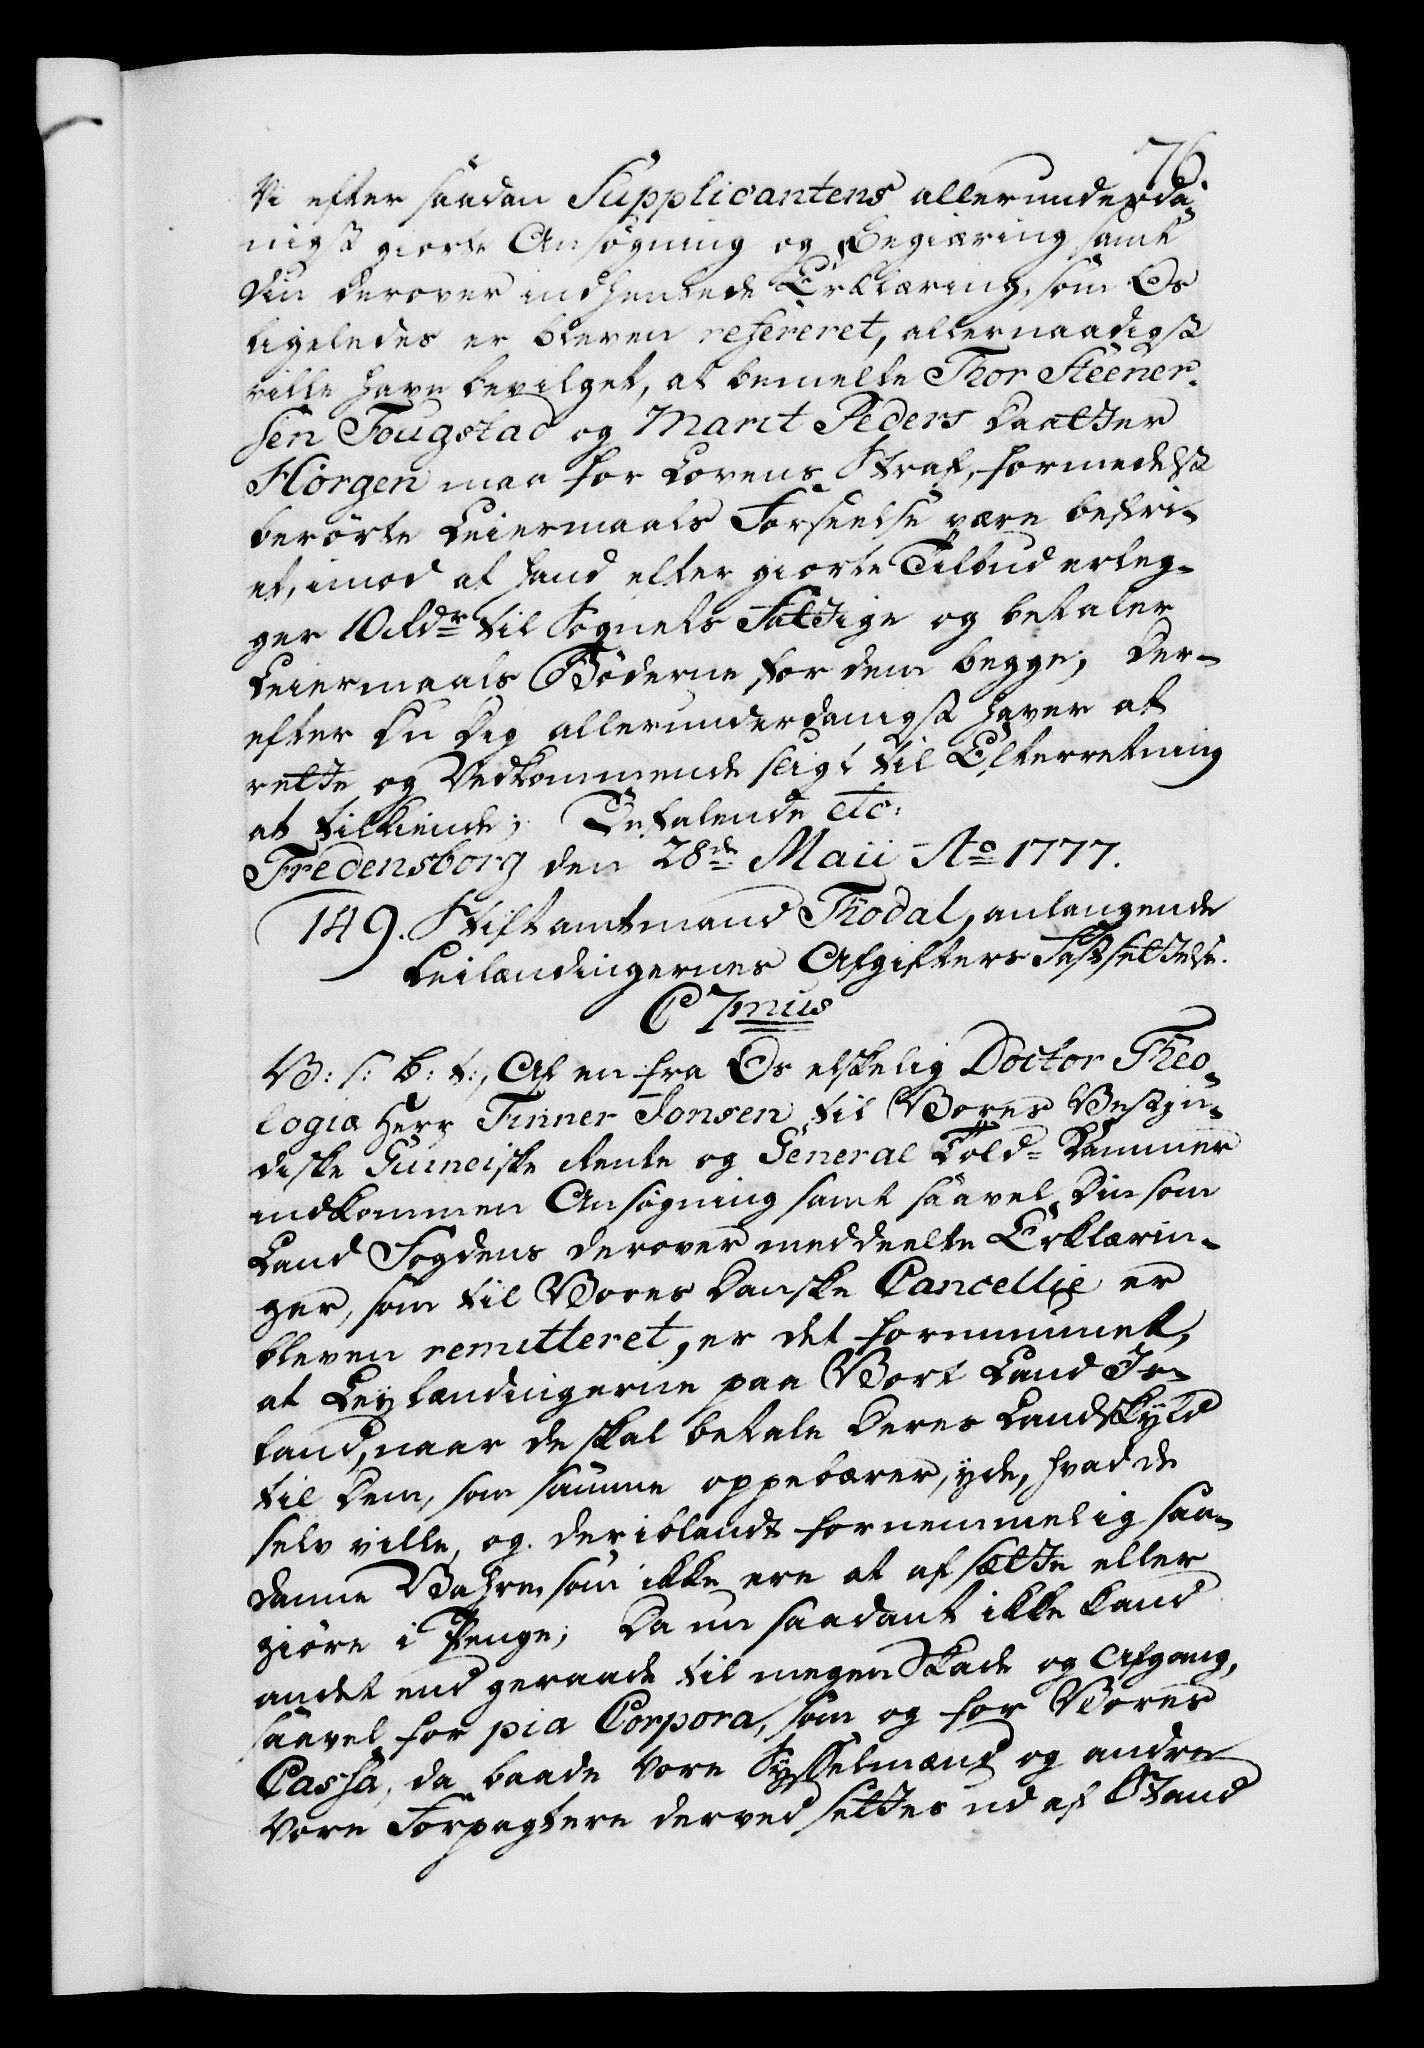 76.
Vi efter saadan Supplicantens allerunderda-
nigst giorte Ansøgning og Begiæring samt
Din derover indhentede Erklæring, som Os
ligeledes er bleven refereret, allernaadigst
ville have bevilget, at bemelte Thor Steener-
sen Fougstad og Marit Peders Daatter
Horgen maa for Lovens Straf, formedelst
berørte Leiermaals Forseelse være befri-
et, imod at hand efter giorte Tilbud erleg-
ger 10 Rdr til Sognets Fattige og betaler
Leiermaals Bøderne for dem begge; Der-
efter Du Dig allerunderdanigst haver at
rette og Vedkommende sligt til Efterretning
at tilkiende; Befalende etc:
Fredensborg den 28de Maii Ao 1777.
149. Stiftamtmand Thodal, anlangende
Leilændingernes Afgifters Fastsettelse.
C 7mus
V: s: B: t:, Af en fra Os elskelig Doctor Theo-
logiæ Herr Finner Jonsen til Vores Vestjn-
diske Guineiske Rente og General Told-Kammer
indkommen Ansøgning samt saavel Din som
Land Fogdens derover meddeelte Erklærin-
ger, som til Vores Danske Cancellie er
bleven remitteret, er det fornummet,
at Leylændingerne paa Vort Land Is-
land, naar de skal betale Deres Landskyld
til Dem, som samme oppebærer, yde, hvad de
selv ville, og deriblandt fornemmelig saa-
danne Vahre, som ikke ere at afsætte eller
giøre i Penge; Da nu saadant ikke kand
andet end geraade til megen Skade og Afgang,
saavel for pia Corpora, som og for Vores
Cassa, da baade Vore Sysselmænd og andre
Vore Forpagtere derved settes ud af Stand